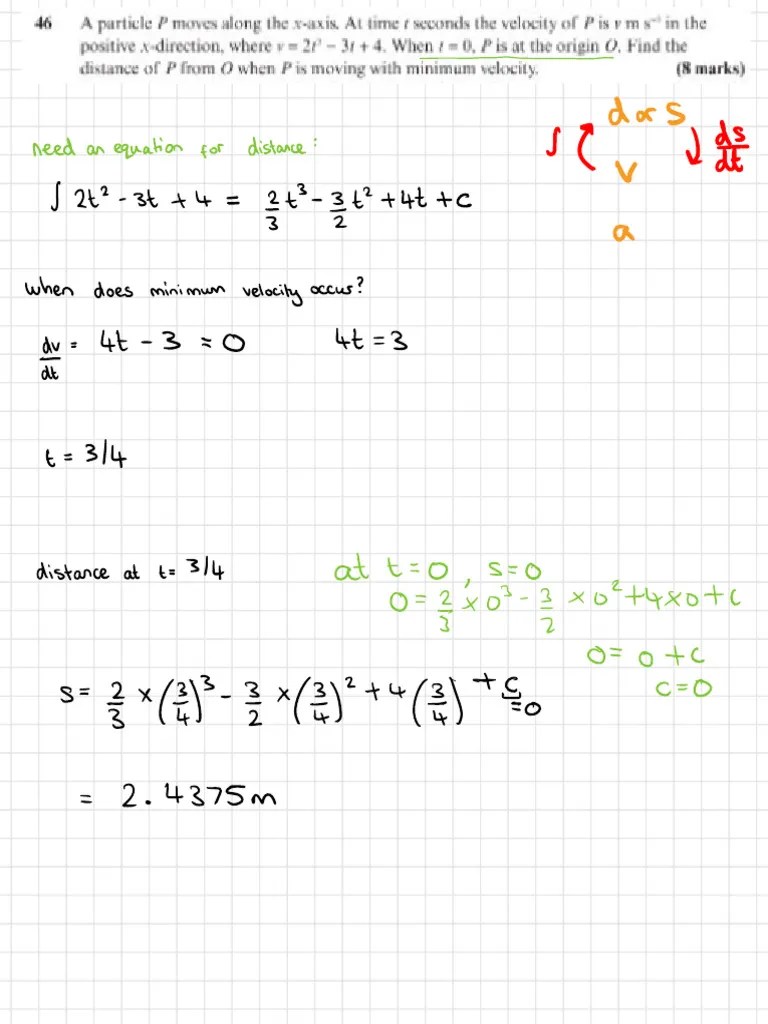 46 A particle P moves along the x-axis. At time t seconds the velocity of P is v m s⁻¹ in the
positive x-direction, where v = 2t² − 3t + 4. When t = 0, P is at the origin O. Find the
distance of P from O when P is moving with minimum velocity. (8 marks)
d or S
need an equation for distance:
∫ ds/dt
v
∫ 2t² - 3t + 4 = 2/3 t³ - 3/2 t² + 4t + c
a
when does minimum velocity occur?
dv/dt = 4t - 3 = 0 4t = 3
t = 3/4
distance at t = 3/4 at t = 0, s = 0
0 = 2/3 × 0³ - 3/2 × 0² + 4×0 + c
0 = 0 + c
c = 0
S = 2/3 × (3/4)³ - 3/2 × (3/4)² + 4(3/4) + c = 0
= 2.4375m